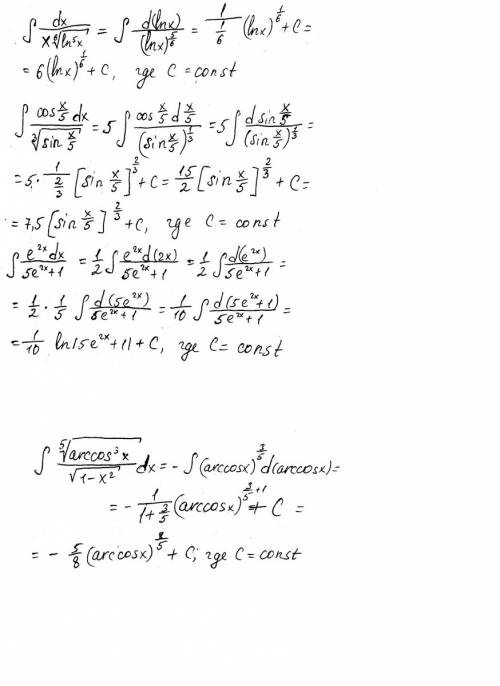 ∫ dx / (x ⁶√(ln⁵x)) = ∫ d(lnx) / (lnx)^(5/6) = 1/(1/6) (lnx)^(1/6) + C =
= 6(lnx)^(1/6) + C, где C = const
∫ cos x/5 dx / ³√(sin x/5) = 5 ∫ cos x/5 d x/5 / (sin x/5)^(1/3) = 5 ∫ d sin x/5 / (sin x/5)^(1/3) =
= 5 · 1/(2/3) [sin x/5]^(2/3) + C = 15/2 [sin x/5]^(2/3) + C =
= 7,5 [sin x/5]^(2/3) + C, где C = const
∫ e^(2x) dx / (5e^(2x) + 1) = 1/2 ∫ e^(2x) d(2x) / (5e^(2x) + 1) = 1/2 ∫ d(e^(2x)) / (5e^(2x) + 1) =
= 1/2 · 1/5 ∫ d(5e^(2x)) / (5e^(2x) + 1) = 1/10 ∫ d(5e^(2x) + 1) / (5e^(2x) + 1) =
= 1/10 ln|5e^(2x) + 1| + C, где C = const
∫ ⁵√(arccos³x) / √(1-x²) dx = - ∫ (arccosx)^(3/5) d(arccosx) =
= - 1/(1 + 3/5) (arccosx)^(3/5 + 1) + C =
= - 5/8 (arccosx)^(8/5) + C, где C = const